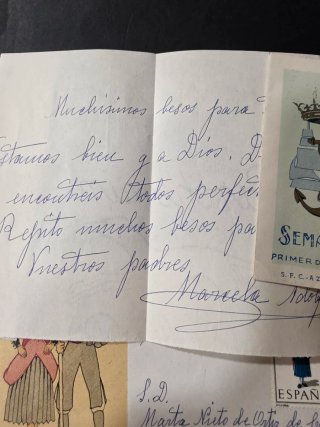 Muchísimos besos para
Estamos bien g a Dios. D
encontreis todos perfec
Repito muchos besos pa
Vuestros padres
Marcela Adol
SEMA
PRIMER D
S. F. C. - AZ
S. D.
Marta Nieto de Ortiz de
ESPAÑ